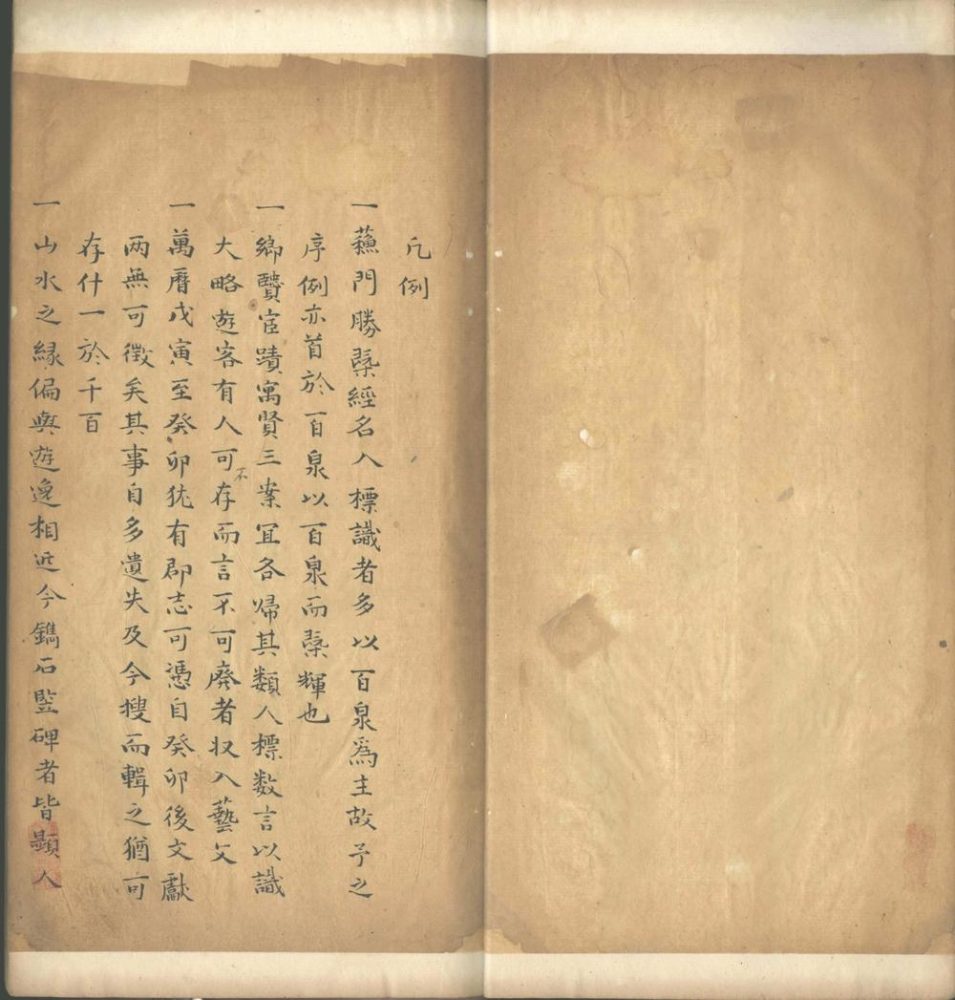 凡例
一蘓門勝槩經名人標識者多以百泉爲主故予之
序例亦首於百泉以百泉而槩輝也
一鄉賢宦蹟寓賢三案冝各歸其類人標数言以識
大略遊客有人可不存而言不可廢者収入藝文
一萬曆戊寅至癸卯犹有郡志可憑自癸卯後文獻
兩無可徵矣其事自多遺失及今搜而輯之猶可
存什一於千百
一山水之緣偏與遊逸相近今鐫石竪碑者皆顯人